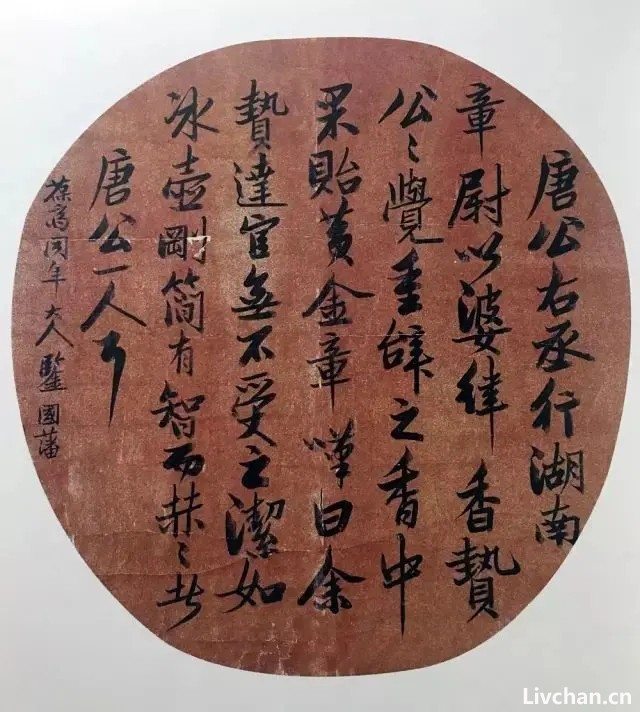 唐公右丞行湖南
章尉以婆律香贄
公〻覺重辭之香中
果貽黄金章嘆曰余
贄達官無不受之潔如
冰壺剛簡有智而赫〻者
唐公一人
葆同年大人鑒 國藩
Livchan.cn